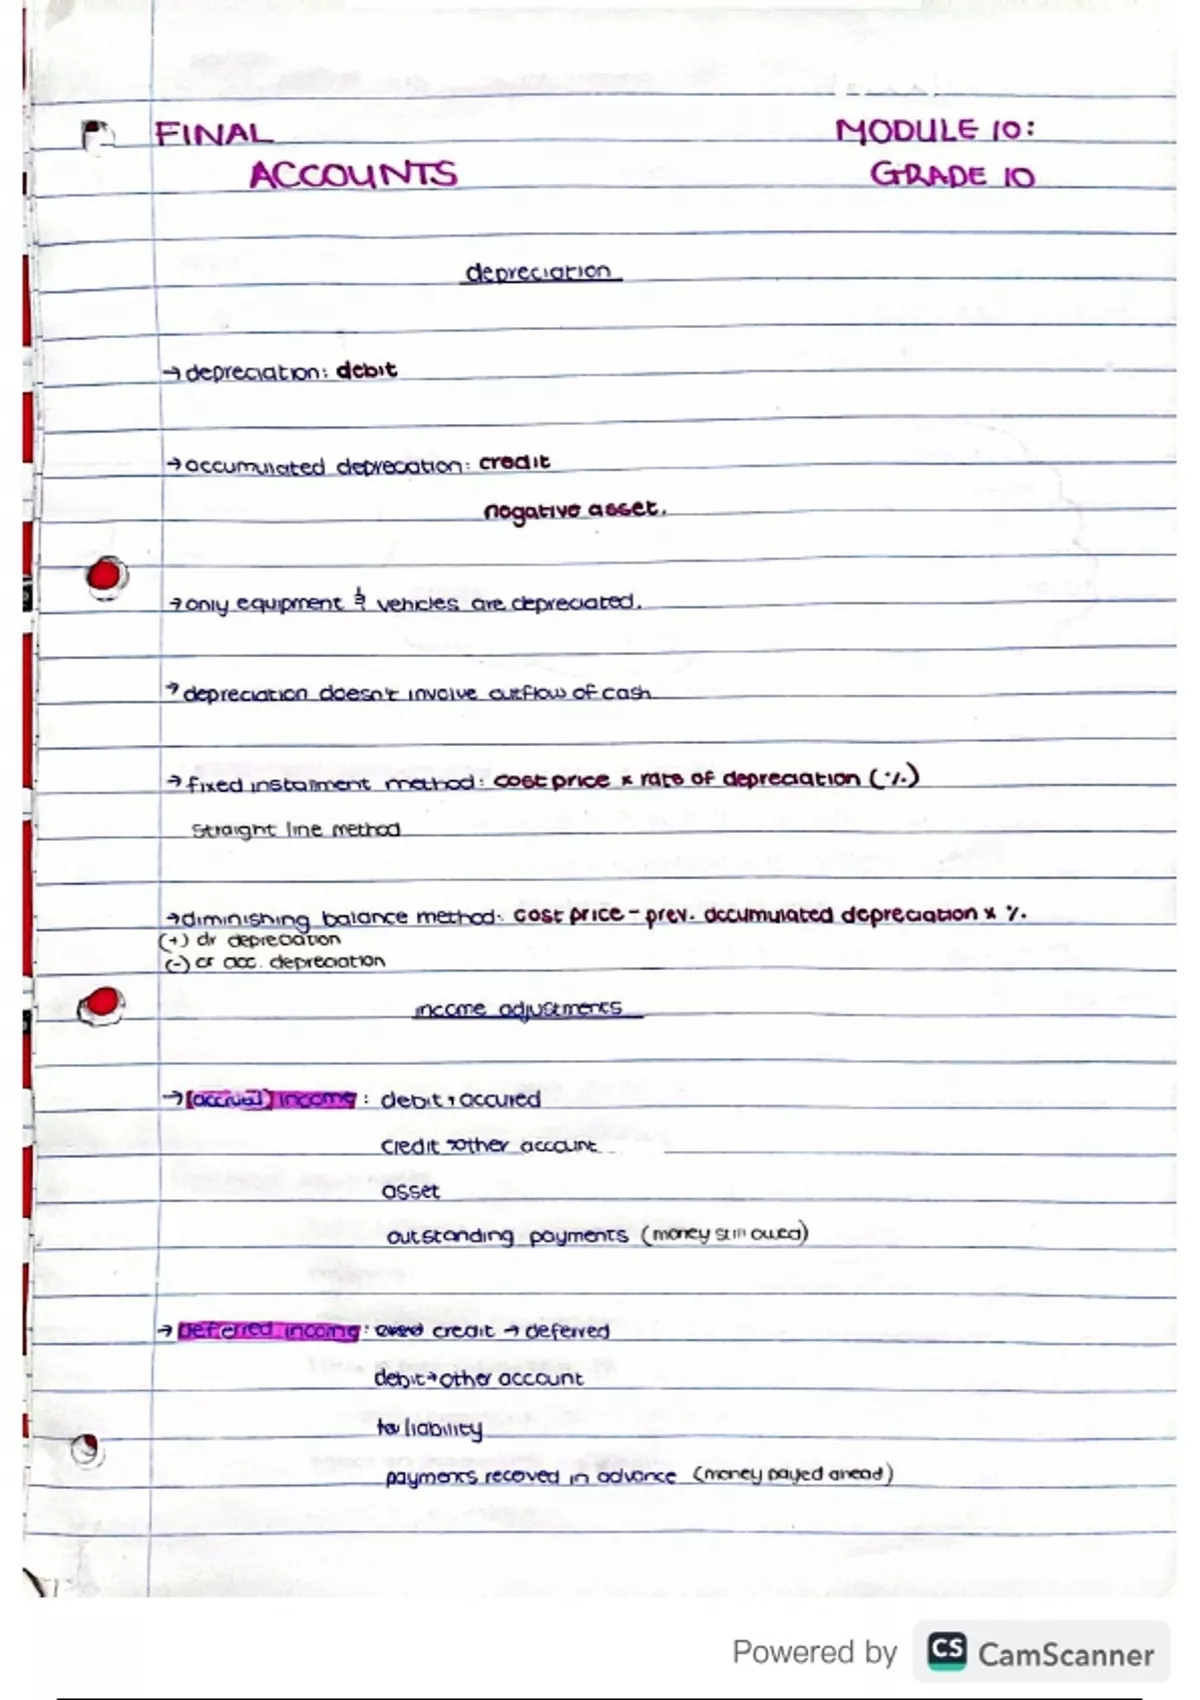 FINAL MODULE 10:
ACCOUNTS GRADE 10
depreciation
→ depreciation: debit
→ accumulated deprecation: credit
negative asset.
→ only equipment & vehicles are depreciated.
→ depreciation doesn't involve outflow of cash
→ fixed instalment method: cost price × rate of depreciation (%)
straight line method
→ diminishing balance method: cost price - prev. accumulated depreciation × %.
(+) dr depreciation
(-) cr acc. depreciation
income adjustments
→ (accrual) income: debit → accured
credit → other account
asset
outstanding payments (money still owed)
→ Deferred income: credit → deferred
debit → other account
liability
payments receved in advance (money payed ahead)
Powered by CS CamScanner